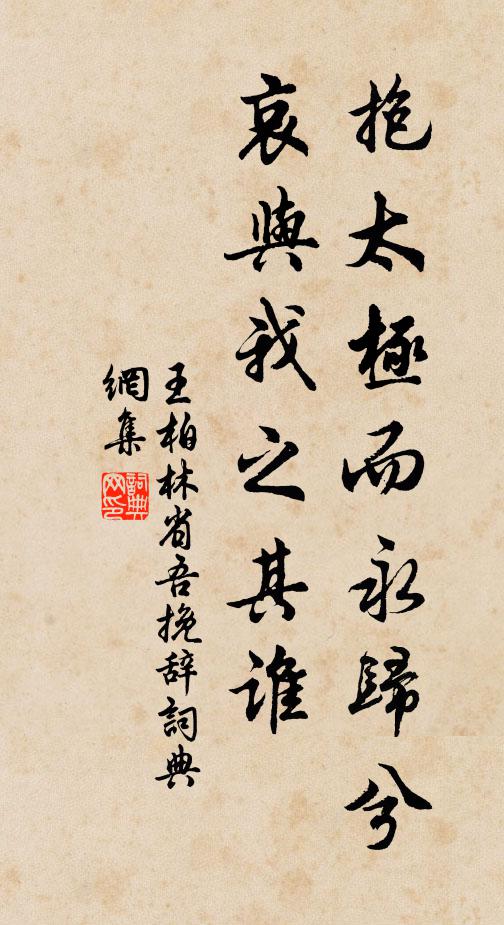 抱太極而永歸兮
哀與我之其誰
王柏林省吾挽辞詞典
網集
詞典
网印